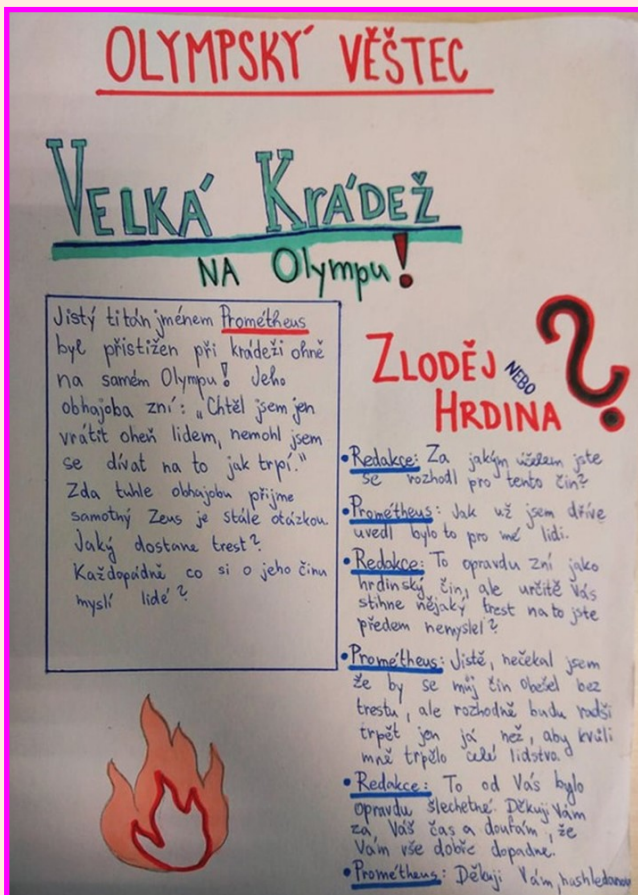 OLYMPSKÝ VĚŠTEC
VELKÁ KRÁDEŽ
NA Olympu!
Jistý titán jménem Prométheus
byl přistižen při krádeži ohně
na samém Olympu! Jeho
obhajoba zní: „Chtěl jsem jen
vrátit oheň lidem, nemohl jsem
se dívat na to jak trpí."
Zda tuhle obhajobu přijme
samotný Zeus je stále otázkou.
Jaký dostane trest?
Každopádně co si o jeho činu
myslí lidé?
ZLODĚJ NEBO
HRDINA ?
• Redakce: Za jakým účelem jste
se rozhodl pro tento čin?
• Prométheus: Jak už jsem dříve
uvedl bylo to pro mé lidi.
• Redakce: To opravdu zní jako
hrdinský čin, ale určitě Vás
stihne nějaký trest na to jste
předem nemyslel?
• Prométheus: Jistě, nečekal jsem
že by se můj čin obešel bez
trestu, ale rozhodně budu radši
trpět jen já než, aby kvůli
mně trpělo celé lidstvo.
• Redakce: To od Vás bylo
opravdu šlechetné. Děkuji Vám
za, Váš čas a doufám, že
Vám vše dobře dopadne.
• Prométheus: Děkuji Vám, nashledanou